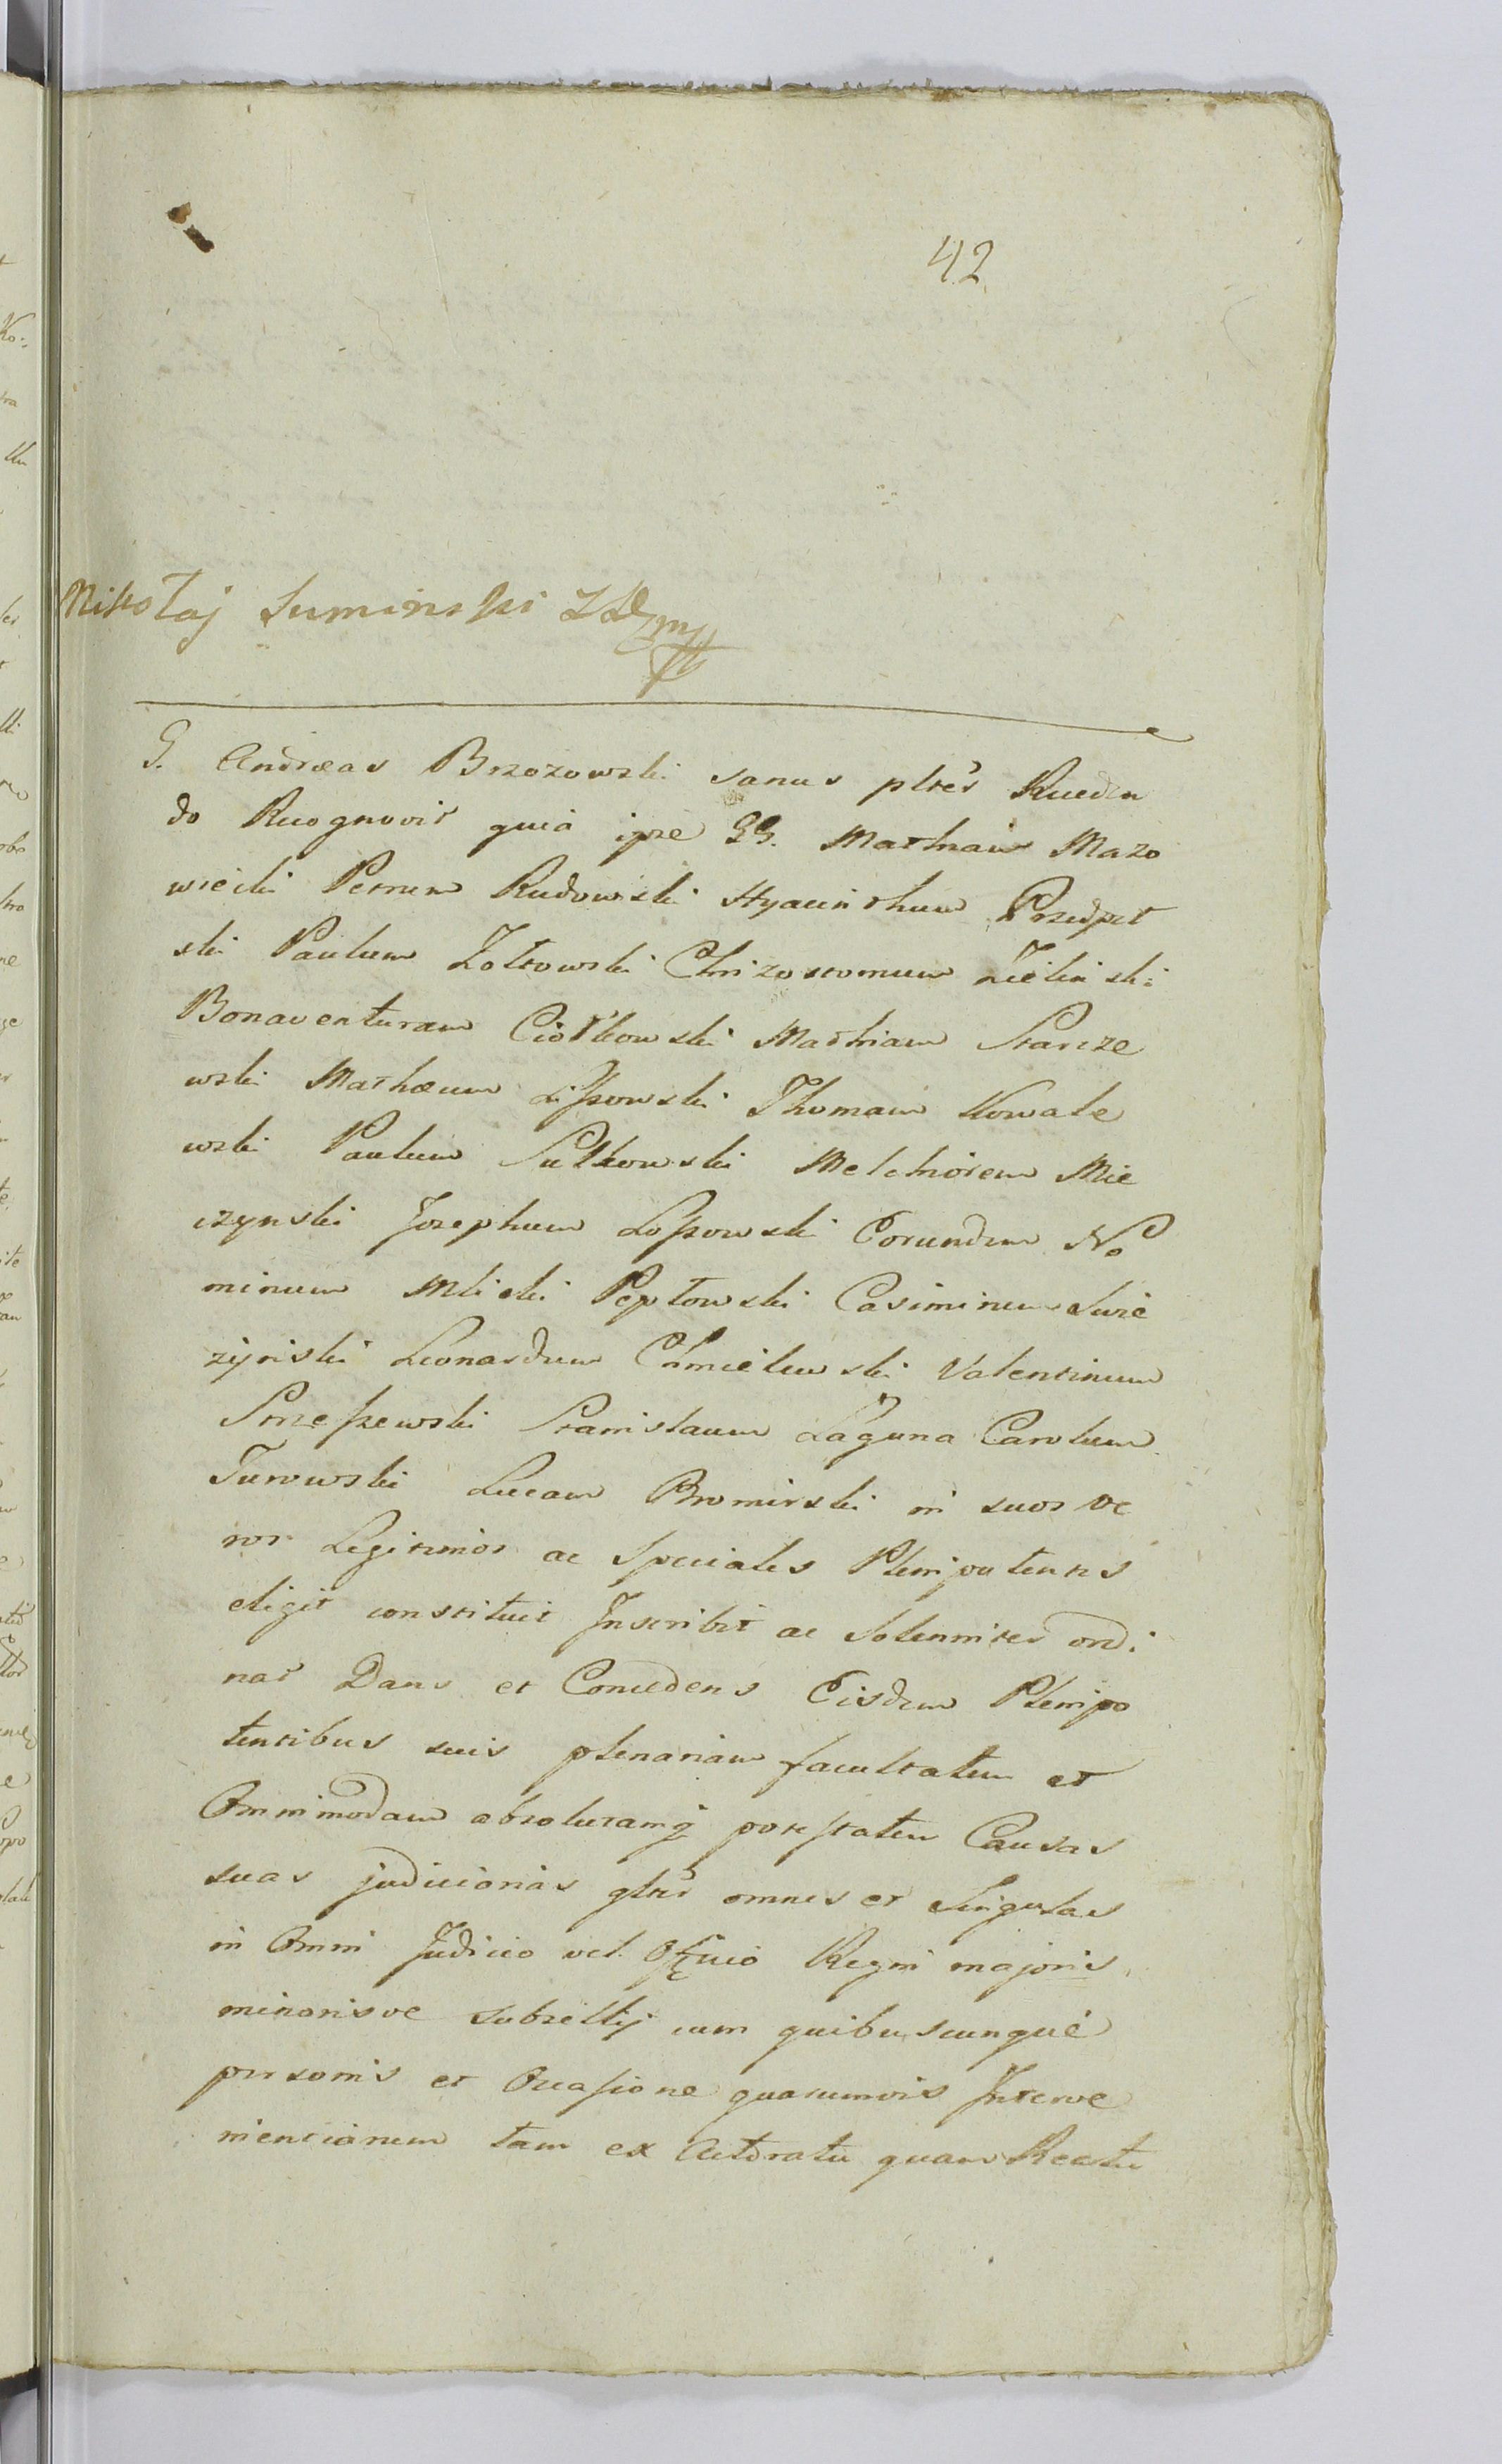 42
Mikołaj Suminski
G. Andreas Brzozowski sanus pltes Receden
do Recognovit quia ipse GG. Mathiam Mazo
wiecki Petrum Rudowski Hyacinthum Przedpeł
ski Paulum Zołtowski Chrizostomum Zieliński
Bonaventuram Ciółkowski Mathiam Starcze
wski Mathæum Lissowski Thomam Kowale
wski Paulum Sułkowski Melchiorem Mie
czynski Josephum Lossowski Eorundem No
minum Mlicki Pepłowski Casimirum Swie
zÿnski Leonardum Chmielewski Valentinum
Strzeszewski Stanislaum Łaguna Carolum
Turowski Lucam Bromirski in suos ve
ros Legitimos ac Speciales Plenipotentes
eligit constituit Inscribit ac Solenniter ordi
nat Dans et Concedens Eisdem Plenipo
tentibus suis plenariam facultatem et
Omnimodam absolutamq potestatem Causas
suas judiciarias gltes omnes et Singulas
in Omni Judicio vel Officio Regni majoris
minorisve Subsellij cum quibuscunque
personis et Occasione quarumvis Interve
nientiarum tam ex Actoratu quam Reatu